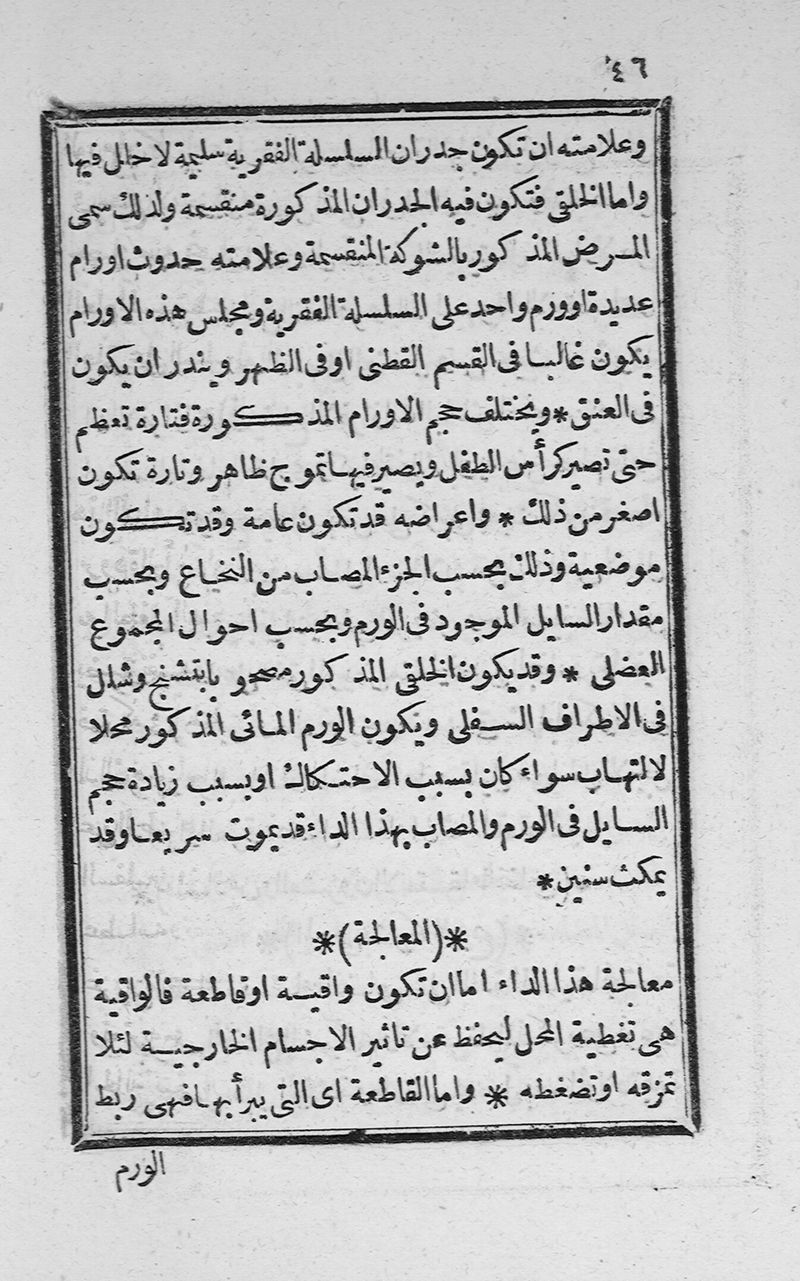 ٤٦
وعلامته ان تكون جدران السلسلة الفقرية سليمة لا خلل فيها
واما الخلقى فتكون فيه الجدران المذكورة منقسمة ولذلك سمى
المرض المذكور بالشوكة المنقسمة وعلامته حدوث اورام
عديدة او ورم واحد على السلسلة الفقرية ومجلس هذه الاورام
يكون غالبا فى القسم القطنى او فى الظهر ويندر ان يكون
فى العنق * ويختلف حجم الاورام المذكورة فتارة تعظم
حتى تصير كرأس الطفل ويصير فيها تموج ظاهر وتارة تكون
اصغر من ذلك * واعراضه قد تكون عامة وقد تكون
موضعية وذلك بحسب الجزء المصاب من النخاع وبحسب
مقدار السايل الموجود فى الورم وبحسب احوال المجموع
العضلى * وقد يكون الخلقى المذكور مصحوبا بتشنج وشلل
فى الاطراف السفلى ويكون الورم المائى المذكور محلا
لالتهاب سواء كان بسبب الاحتكاك او بسبب زيادة حجم
السايل فى الورم والمصاب بهذا الداء قد يموت سريعا وقد
يمكث سنين *
*(المعالجة)*
معالجة هذا الداء اما ان تكون واقية او قاطعة فالواقية
هى تغطية المحل ليحفظ عن تاثير الاجسام الخارجية لئلا
تمزقه او تضغطه * واما القاطعة اى التى يبرأ بها فهى ربط
الورم